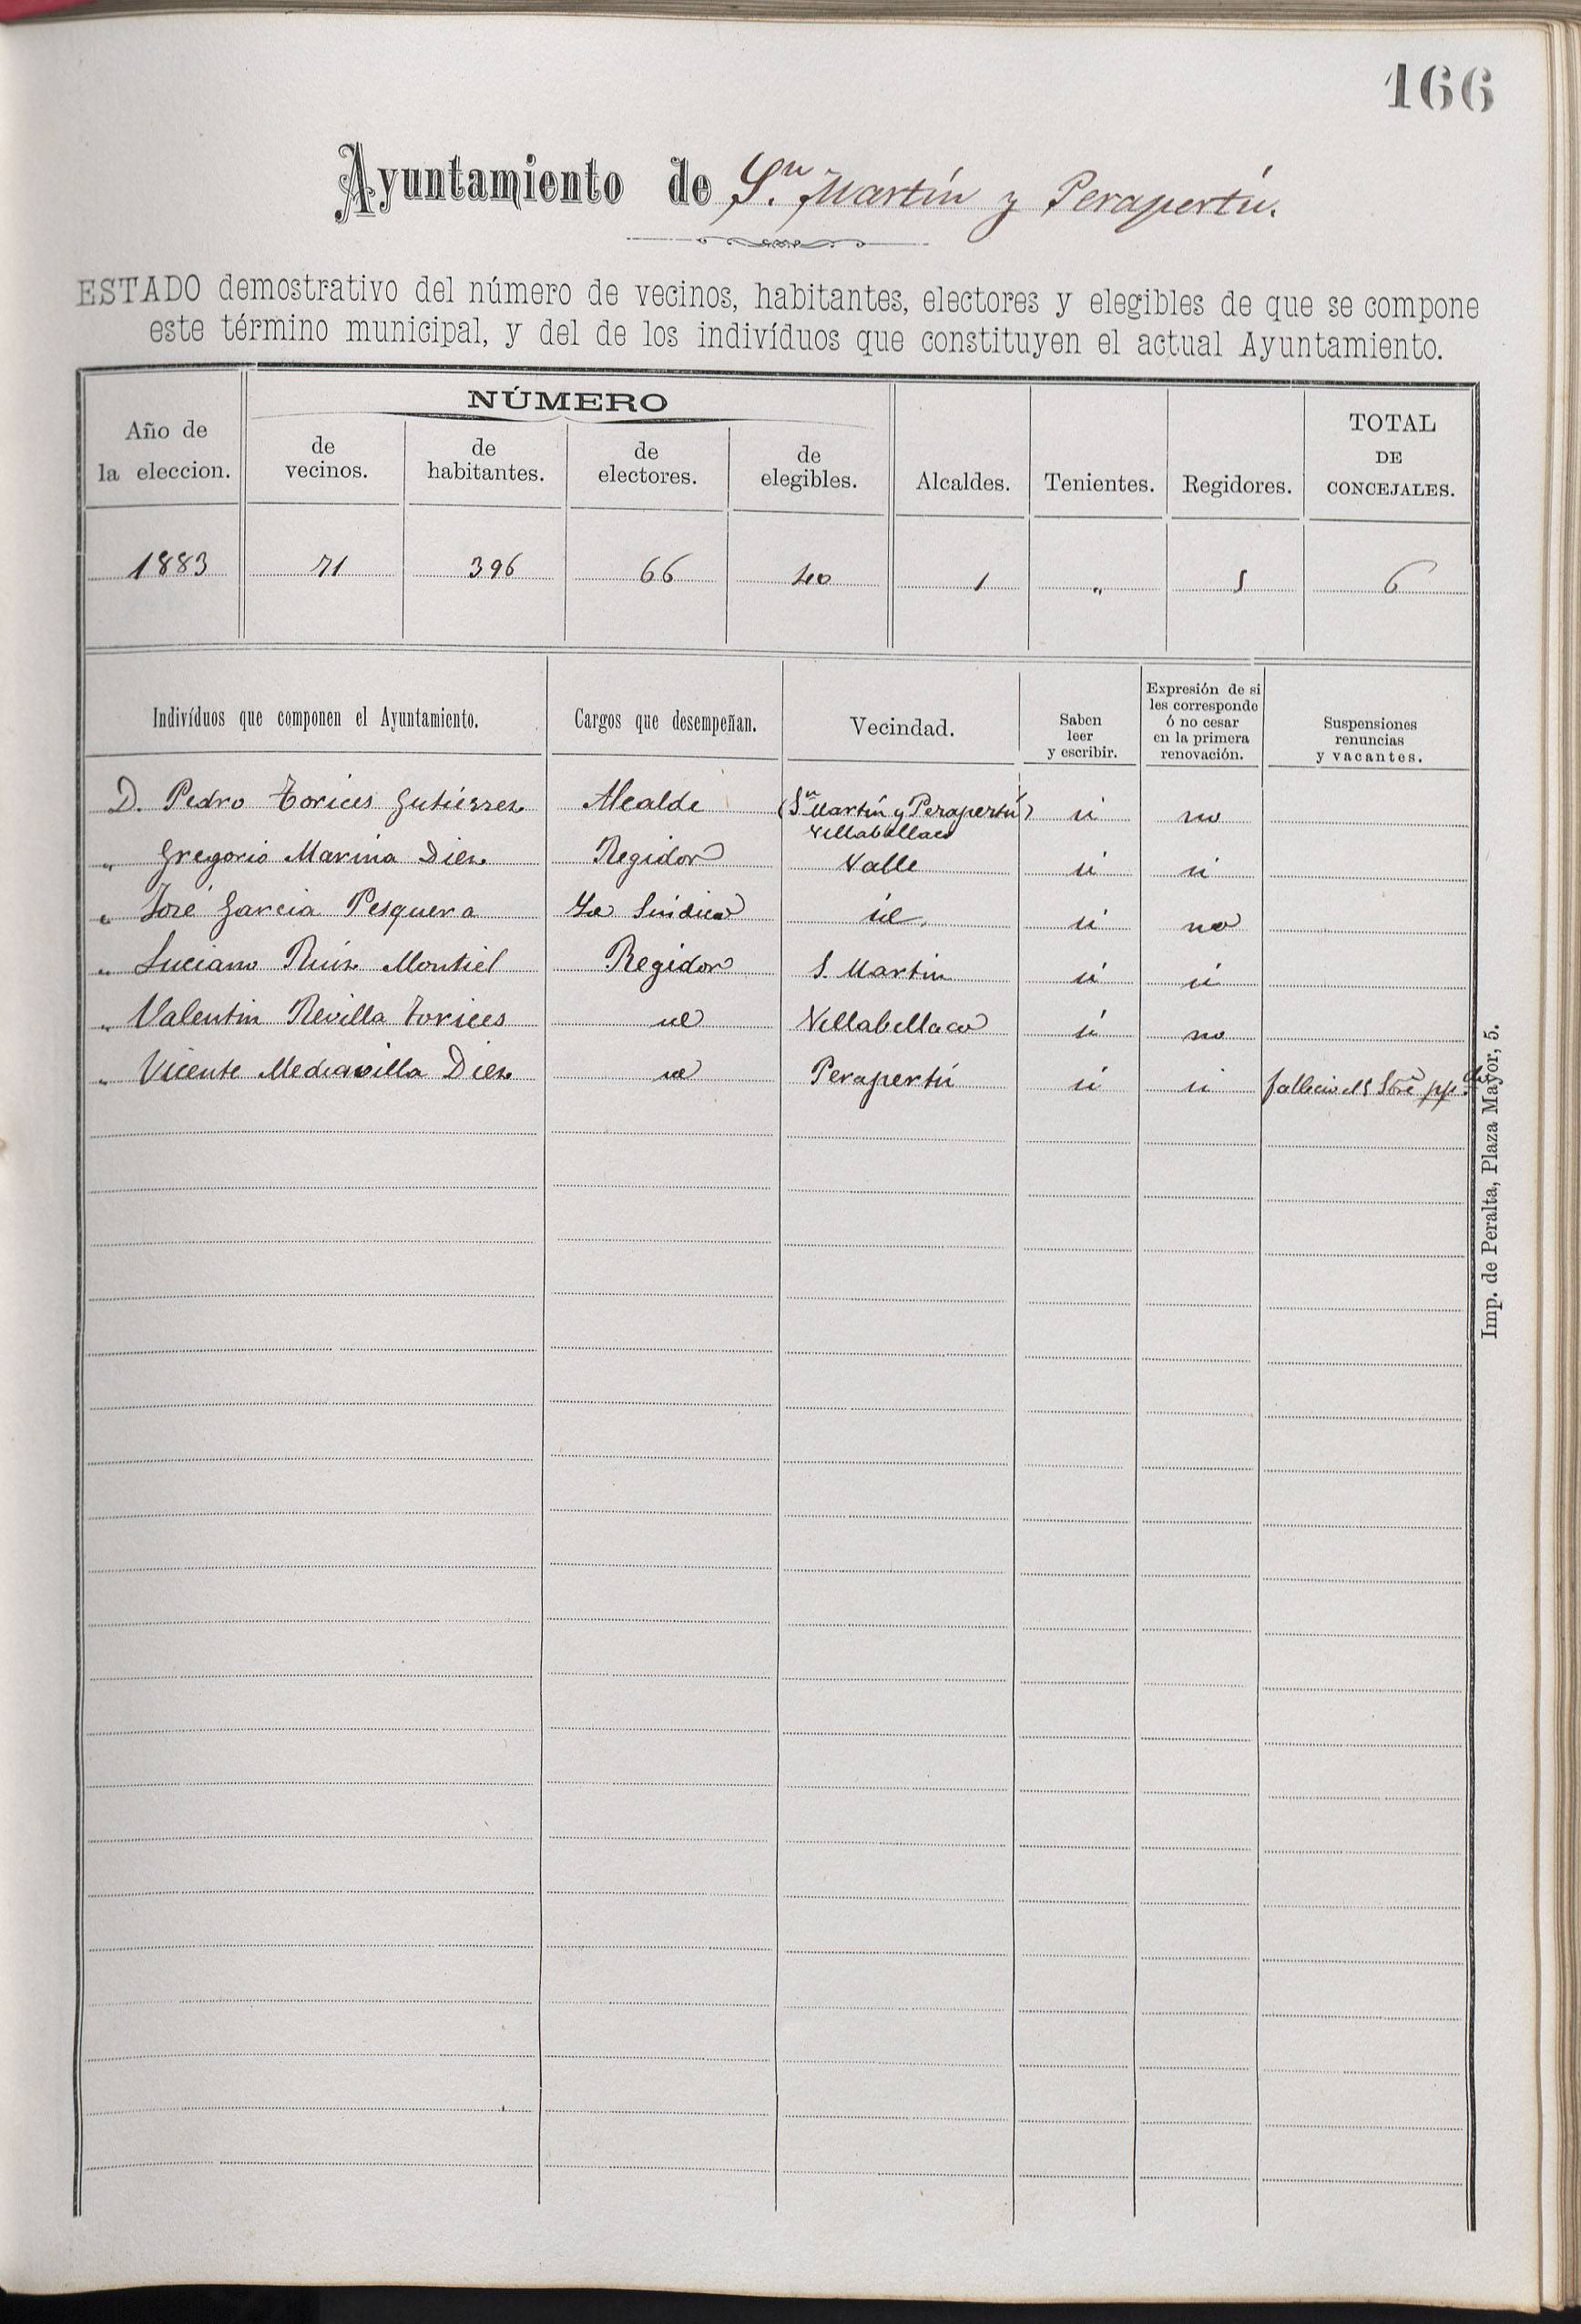 166
Ayuntamiento de Sn. Martín y Perapertú.
ESTADO demostrativo del número de vecinos, habitantes, electores y elegibles de que se compone
este término municipal, y del de los indivíduos que constituyen el actual Ayuntamiento.
Año de la eleccion. NÚMERO de vecinos. de habitantes. de electores. de elegibles. Alcaldes. Tenientes. Regidores. TOTAL DE CONCEJALES.
1883 71 396 66 40 1 " 5 6
Indivíduos que componen el Ayuntamiento. Cargos que desempeñan. Vecindad. Saben leer y escribir. Expresión de si les corresponde ó no cesar en la primera renovación. Suspensiones renuncias y vacantes.
D. Pedro Torices Gutiérrez Alcalde (Sn Martín y Perapertú) si no
Villabellaco
" Gregorio Marina Diez Regidor Valle si si
" José Garcia Pesquera Síndico id. si no
" Luciano Ruiz Montiel Regidor S. Martin si si
" Valentin Revilla Torices id Villabellaco si no
" Vicente Mediavilla Diez id Perapertú si si falleció
Imp. de Peralta, Plaza Mayor, 5.